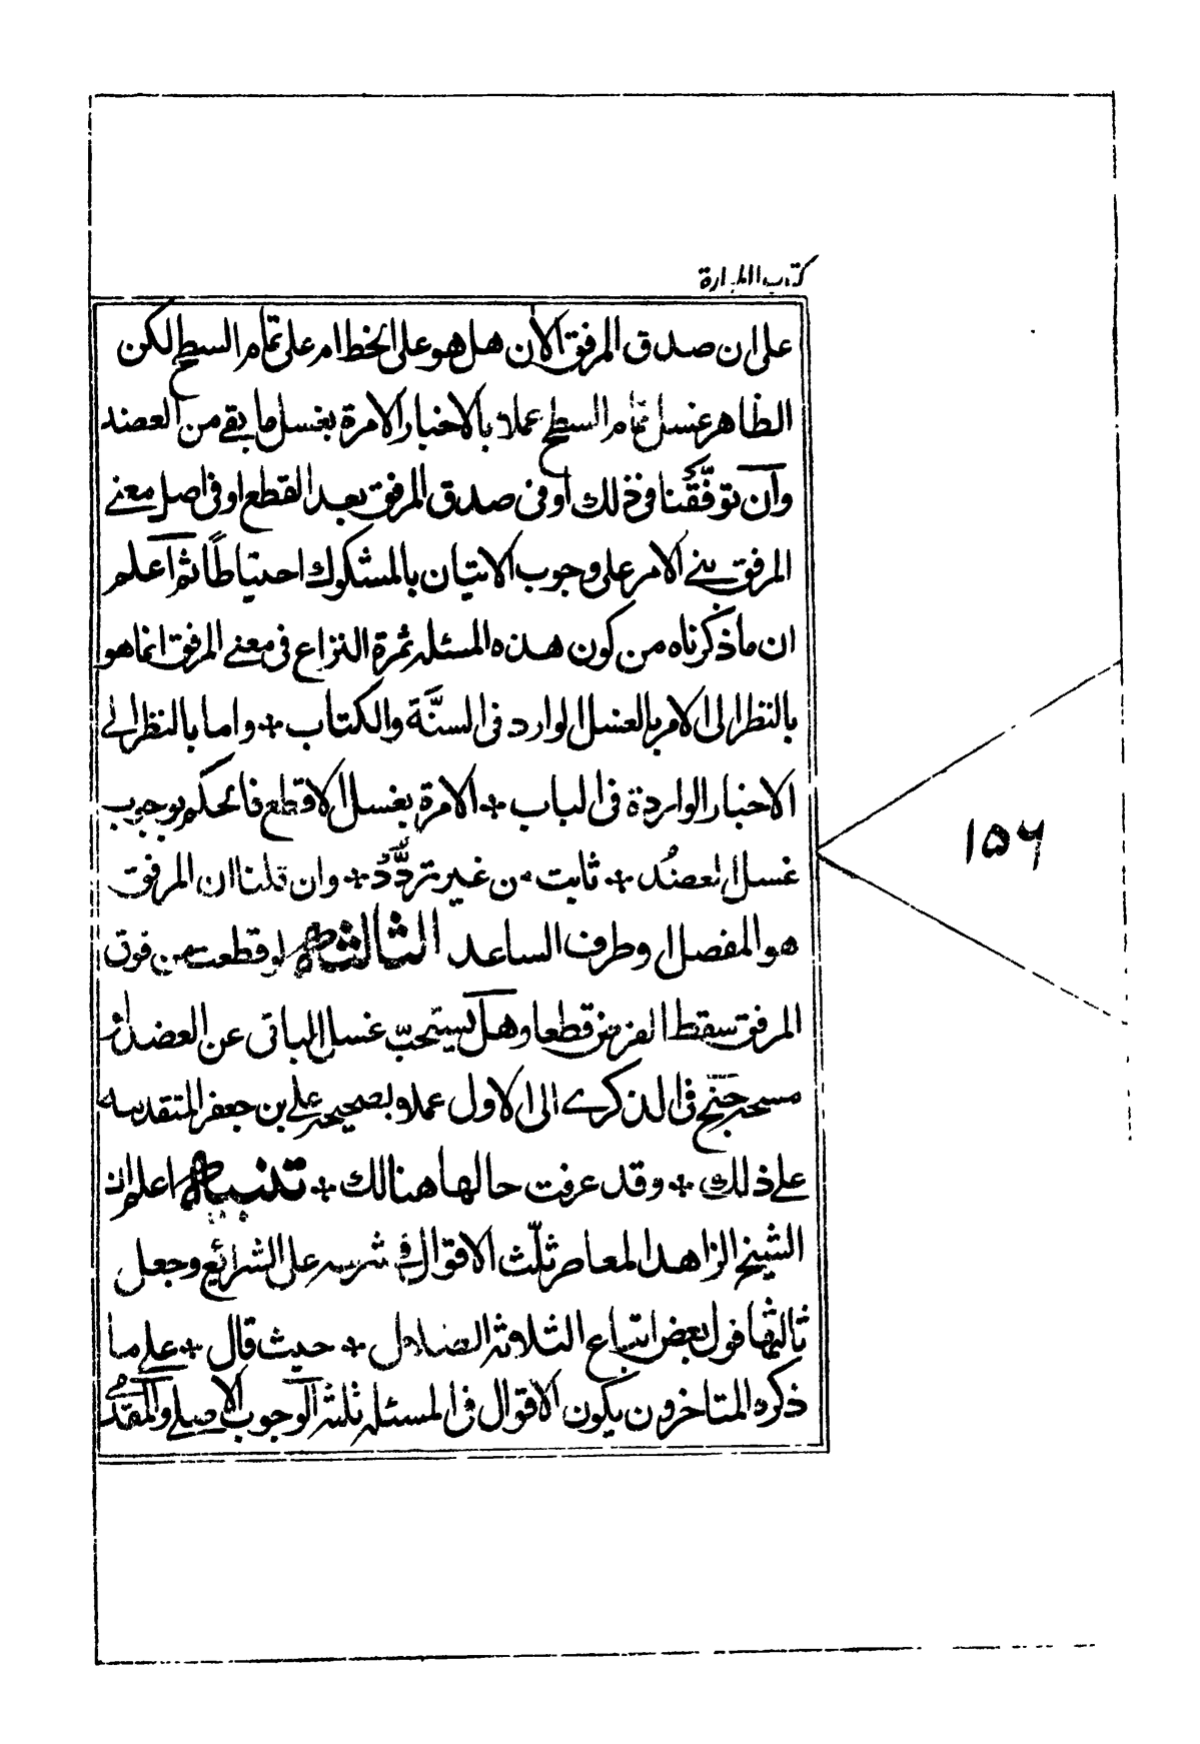 كتاب الطهارة
على ان صدق المرفق الآن هل هو على الخط ام على تمام السطح لكن
الظاهر غسل تمام السطح عملا بالاخبار الامرة بغسل ما بقے من العضد
وان توقّفنا فى ذلك او فى صدق المرفق بعد القطع او فى اصل معنے
المرفق بنے الامر على وجوب الاتيان بالمشكوك احتياطًا ثم اعلم
ان ما ذكرناه من كون هذه المسئلہ ثمرة النزاع فى معنے المرفق انما هو
بالنظر الى الامر بالغسل الوارد فى السنَّة والكتاب + واما بالنظر الے
الاخبار الواردة فى الباب + الامرة بغسل الاقطع فالحكم بوجوب
غسل العضد + ثابت من غير تردُّد + وان قلنا ان المرفق
هو المفصل او طرف الساعد الثالثہ لو قطعت من فوق
المرفق سقط الفرض قطعا وهل يستحبّ غسل الباقى عن العضد او
مسحہ جنح فى الذكرے الى الاول عملا بصحيحہ علے بن جعفر المتقدمہ
علے ذلك + وقد عرفت حالها هنالك + تنبيہ اعلم ان
الشيخ الزاهد المعاصر ثلّث الاقوال فے شرحہ على الشرائع وجعل
ثالثها قول بعض اتباع الثلاثہ + حيث قال + علے ما
ذكره المتاخرون يكون الاقوال فى المسئلہ ثلثہ الوجوب الاصلے والمقدمے
۱۵۶